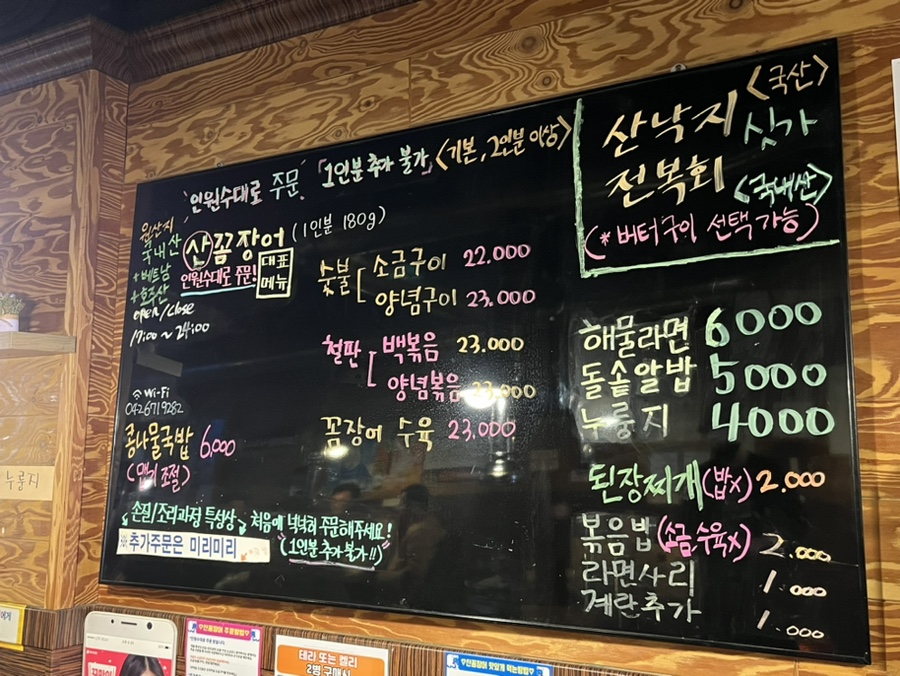 인원수대로 주문
「1인분 추가 불가」 <기본, 2인분 이상>
원산지
국내산
+베트남
+호주산
open/close
17:00 ~ 24:00
산꼼장어 (1인분 180g)
인원수대로 주문!
대표
메뉴
숯불 [ 소금구이 22.000
양념구이 23.000
철판 [ 백볶음 23.000
양념볶음 23.000
꼼장어 수육 23.000
Wi-Fi
0426719282
콩나물국밥 6.000
(맵기 조절)
손질/조리과정 특성상 처음에 넉넉히 주문해주세요!
추가주문은 미리미리
(1인분 추가 불가!!)
산낙지 <국산>
싯가
전복회 <국내산>
(* 버터구이 선택 가능)
해물라면 6000
돌솥알밥 5000
누룽지 4000
된장찌개 (밥x) 2.000
볶음밥 (소금, 수육x) 2.000
라면사리 1.000
계란추가 1.000
누룽지
테라 또는 켈리
2병 구매시